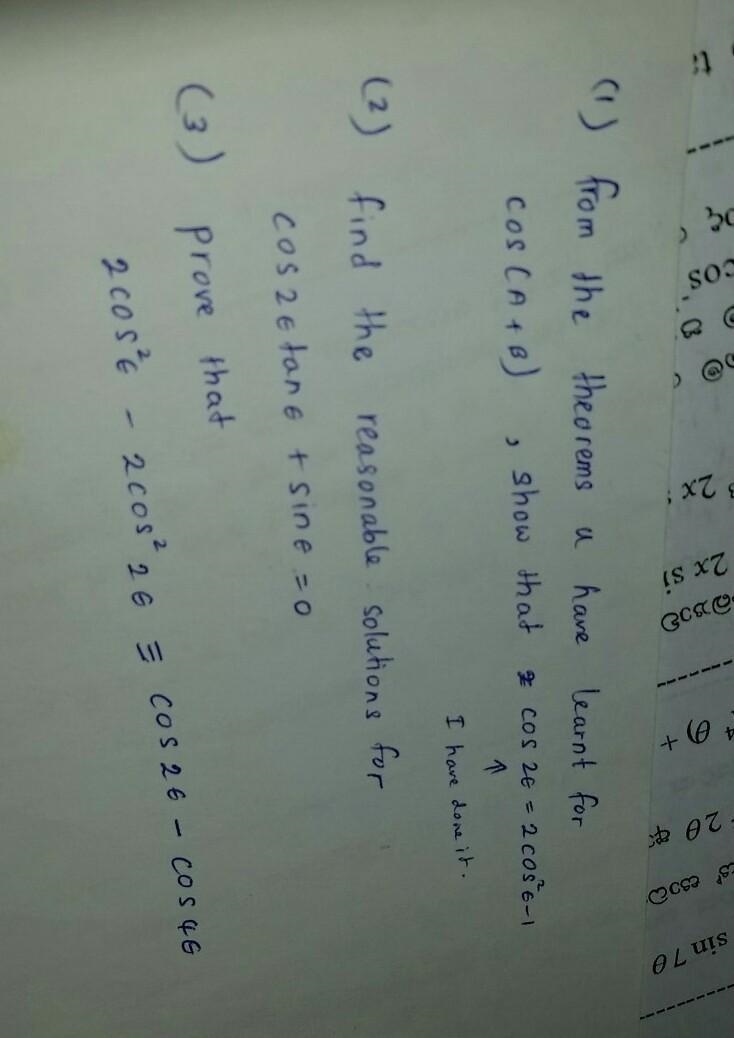 (1) from the theorems u have learnt for
cos(A+B) , show that cos 2ϵ = 2cos²ϵ-1
↑
I have done it.
(2) find the reasonable solutions for
cos2ϵtanϵ + sinϵ = 0
(3) prove that
2cos²ϵ - 2cos²2ϵ ≡ cos2ϵ - cos4ϵ
2x
2x si
θ) +
2θ
sin 7θ